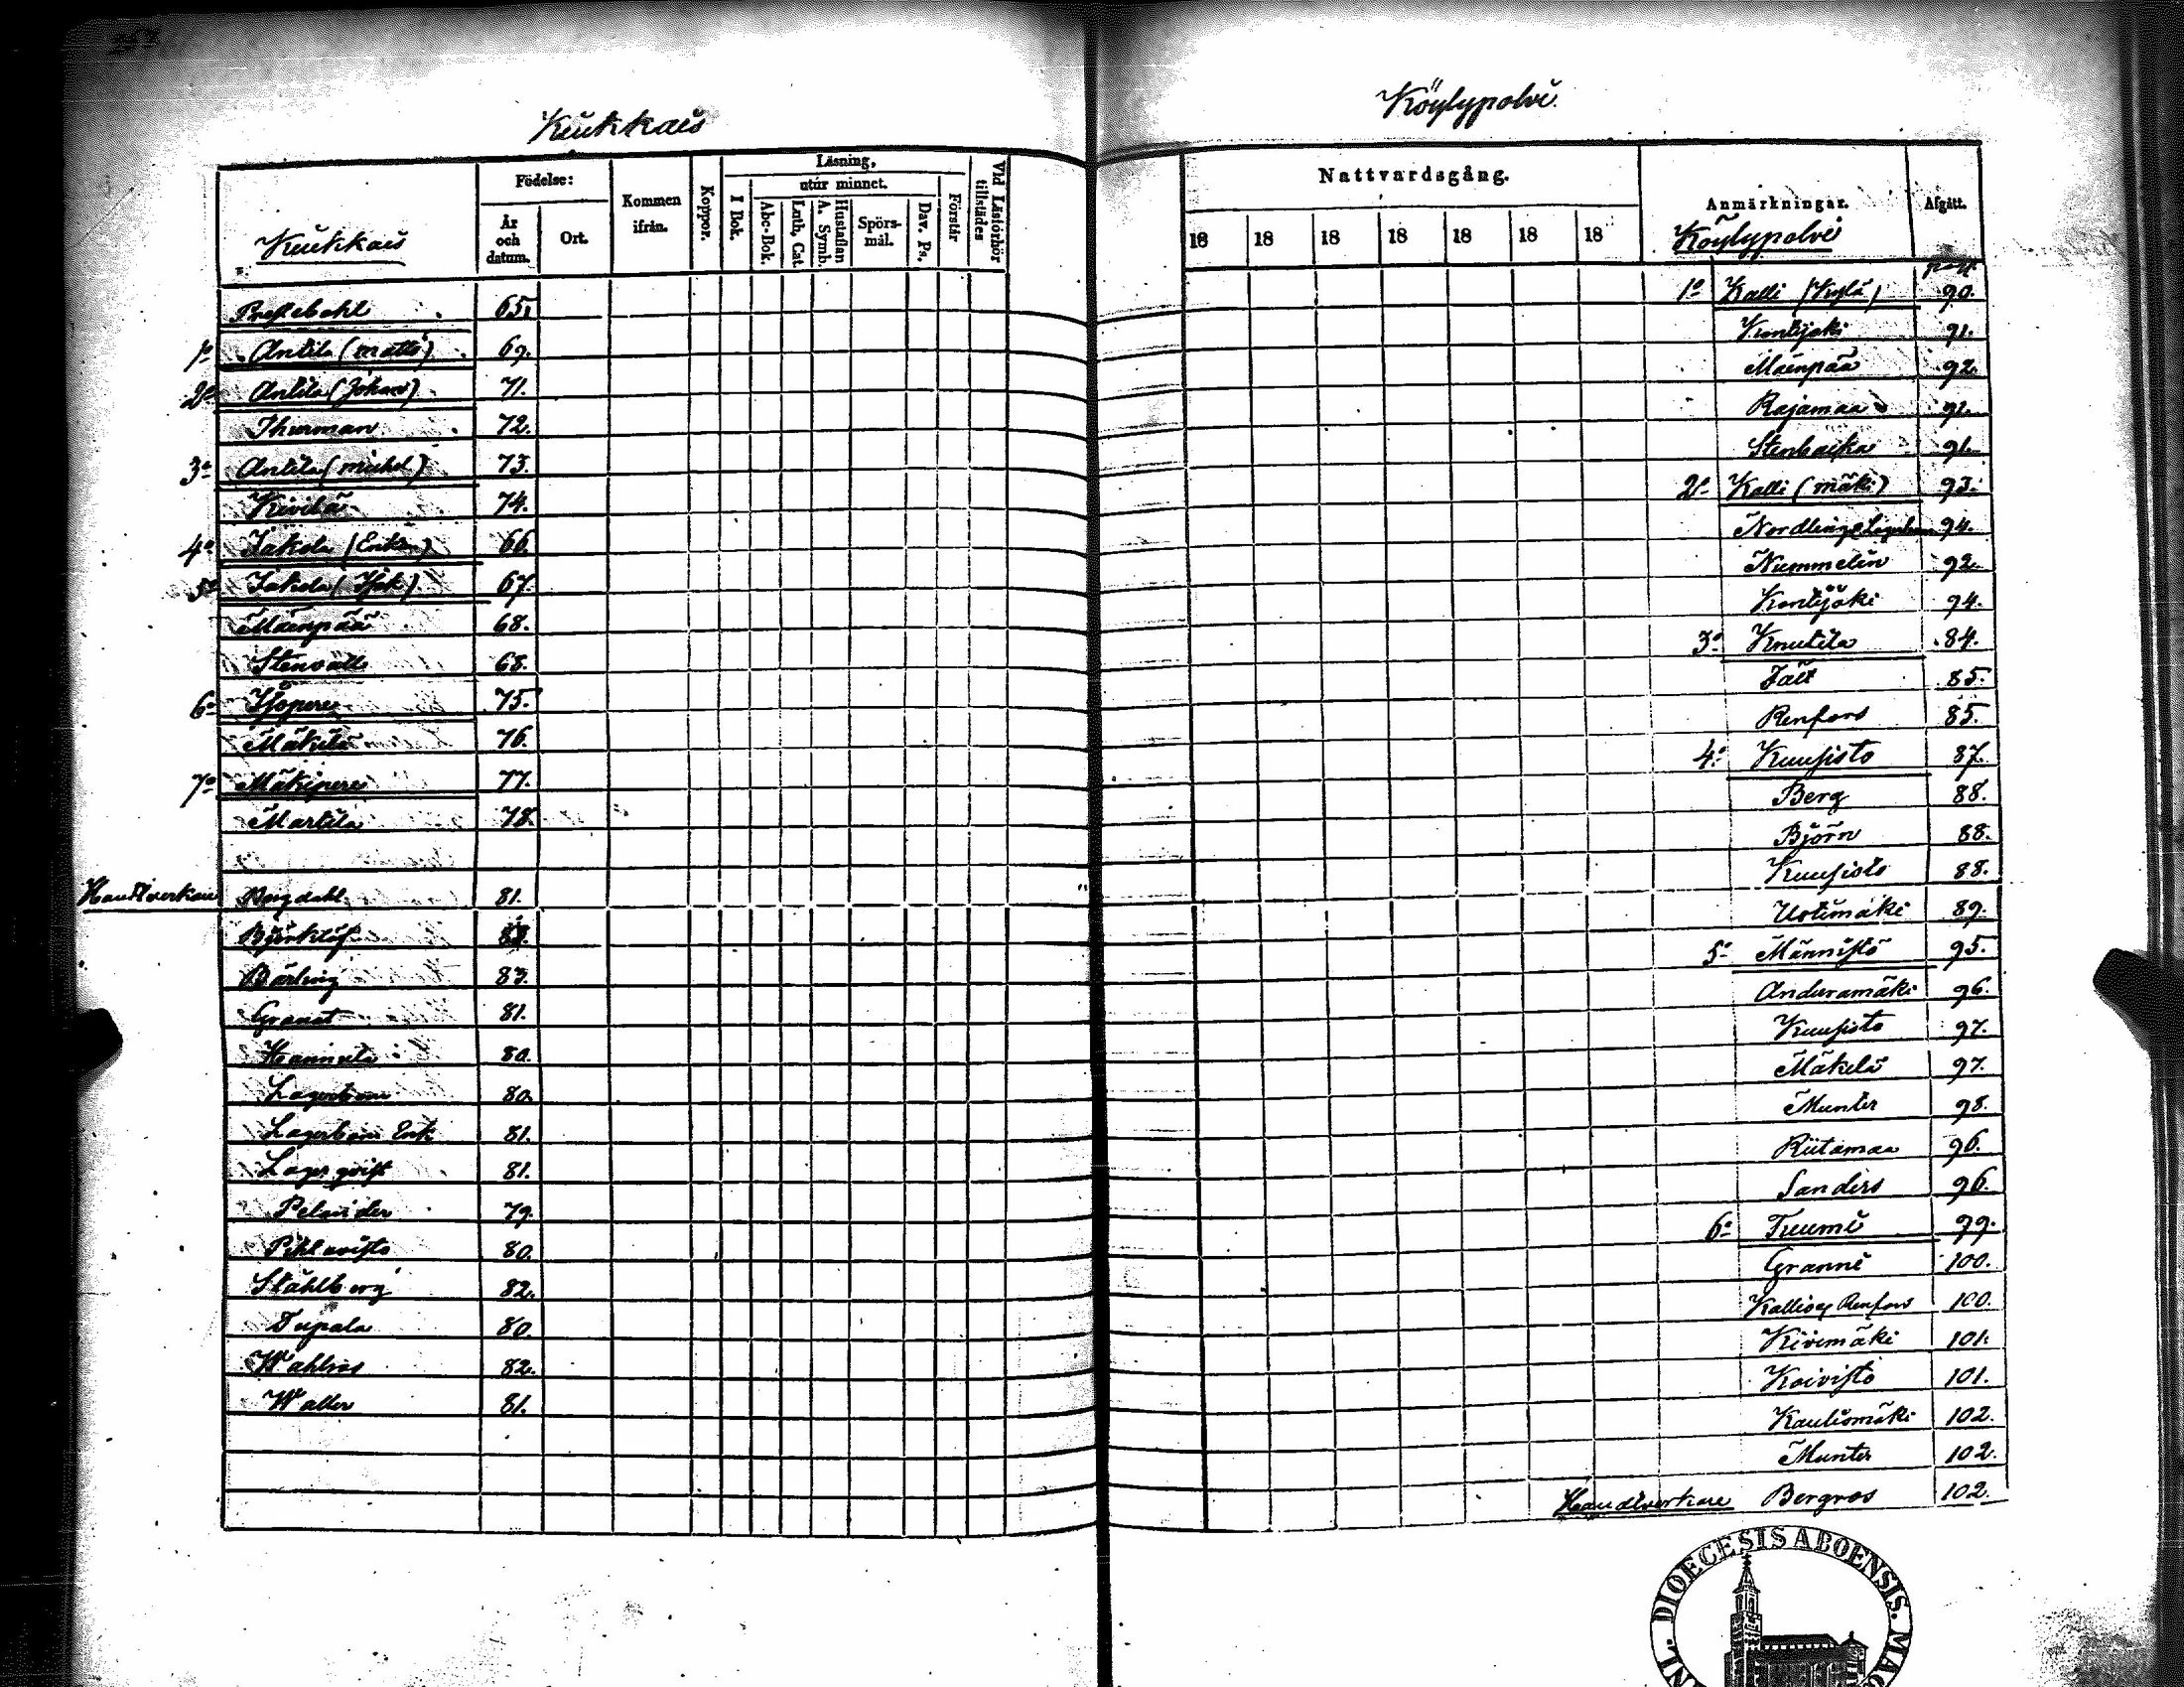 257
Kukkais
Födelse:
År och datum.
Ort.
Kommen ifrån.
Koppor.
Läsning,
utur minnet.
I Bok.
Abc-Bok.
Luth. Cat.
Hustaflan A. Symb.
Spörsmål.
Dav. Ps.
Förstår
Vid Läsförhör tillstädes
Kukkais
Prestebohl 65.
1o Antila (Matts) 69.
2o Antila (Johan) 71.
Thurman 72.
3o Antila (Michel) 73.
Kivilä 74.
4o Jakola (Eriks) 66.
5o Jakola (Isak) 67.
Mäenpää 68.
Stenvall 68.
6o Isopere 75.
Mäkelä 76.
7o Mäkipere 77.
Martila 78.
Handtverkare Bergdahl 81.
Björklöf
Bärling 83.
Granat 81.
Hannula 80.
Lagerbom 80.
Lagerbom Erik 81.
Lagerqvist 81.
Pelander 79.
Pihlavisto 80.
Ståhlberg 82.
Tupala 80
Wahlros 82.
Waller 81.
Köylypolvi.
Nattvardsgång.
18 18 18 18 18 18 18
Anmärkningar.
Afgått.
Köylypolvi
1o Kalli (Kylä) 90.
Kontijoki 91.
Mäenpää 92.
Rajamaa 91.
Stenbacka 91.
2o Kalli (mäki) 93.
Nordling 94.
Nummelin 92.
Kontijoki 94.
3o Knutila 84.
Fält 85.
Renfors 85.
4o Kuusisto 87.
Berg 88.
Björn 88.
Kuusisto 88.
Uotimäki 89.
5o Männistö 95.
Anduramäki 96.
Kuusisto 97.
Mäkelä 97.
Munter 98.
Riitamaa 96.
Sanders 96.
6o Tuumi 99.
Granni 100.
Kallio Renfors 100.
Kivimäki 101.
Koivisto 101.
Kautiomäki 102.
Munter 102.
Handtverkare Bergros 102.
DIOECESIS ABOENSIS.